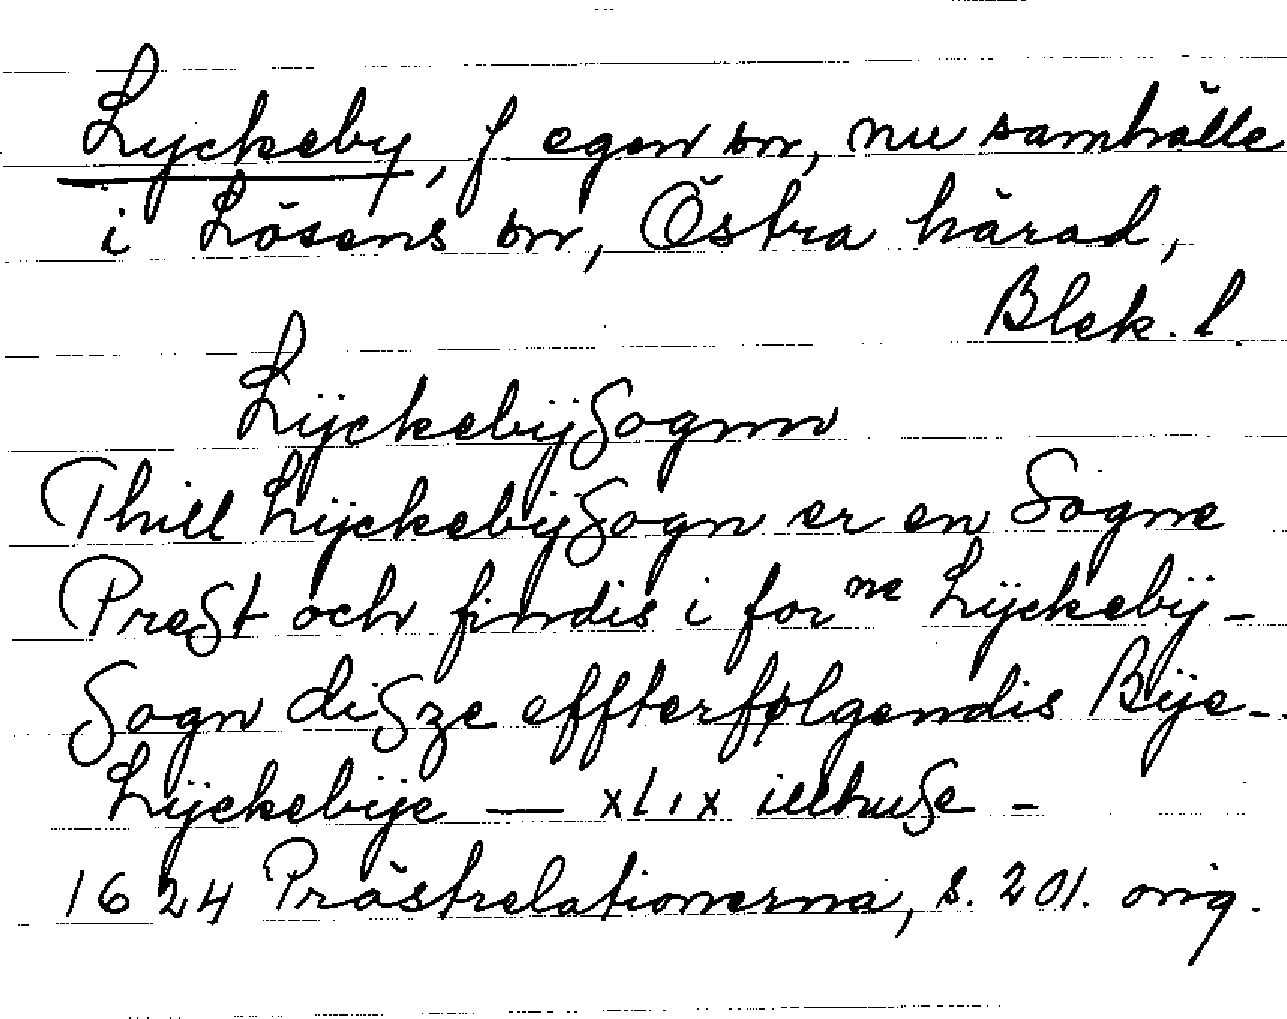 Lyckeby, f. egen sn, nu samhälle
i Lösens sn, Östra härad,
Blek. l.
Lÿckebÿ Sognn
Thill Lÿckebÿ Sogn er en Sogne
PreSt och findis i for ne Lÿckebÿ-
Sogn diSze effterfølgendis Bÿe-
Lÿckebÿe — xlix illhuSe -
1624 Prästrelationerna, s. 201. orig.